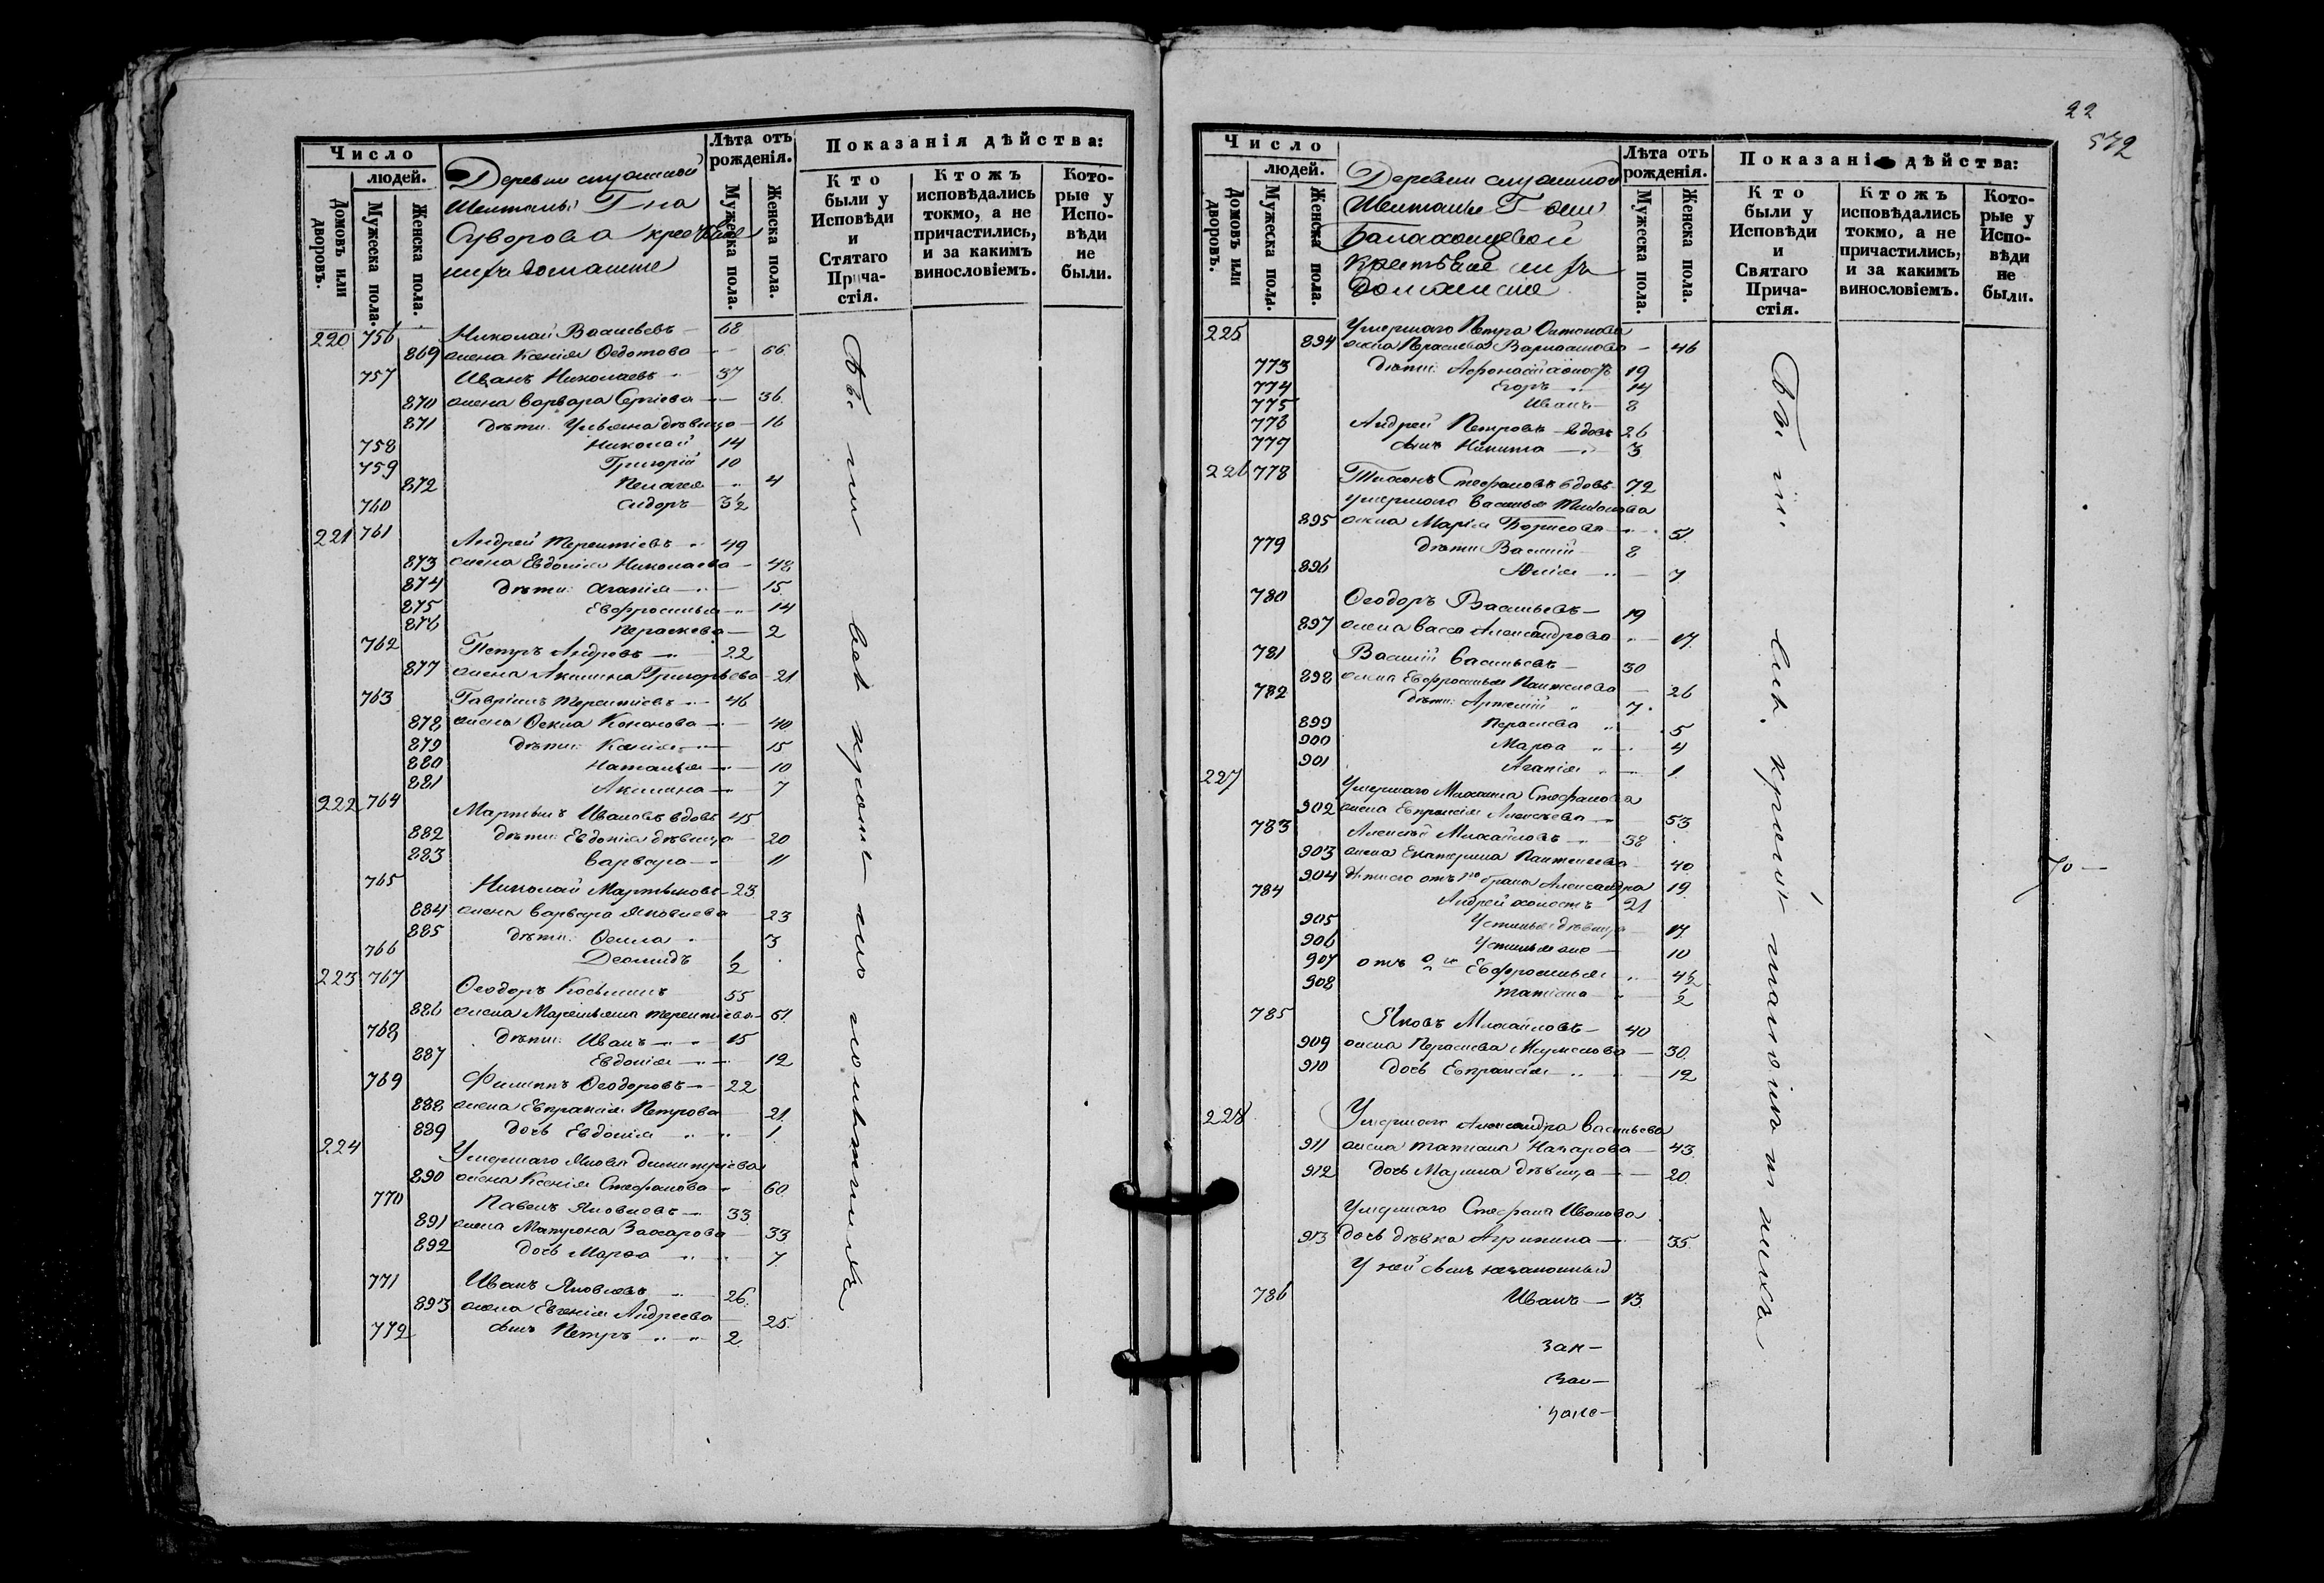 Число
людей.
Домовъ или дворовъ.
Мужеска пола.
Женска пола.
Деревни
Г на
Суворова
домашние
Лѣта отъ рожденія.
Мужеска пола.
Женска пола.
Показанія дѣйства:
Кто были у Исповѣди и Стятаго Прича-стія.
Ктожъ исповѣдались токмо, а не причастились, и за какимъ винословіемъ.
Кото-рые у Испо-вѣди не были.
220 756 Николай Васильевъ 68
869 жена Ксенія Ѳедотова 66
757 Иванъ Николаевъ 37
870 жена Варвара Сергіева 36
871 дѣти: Ульяна дѣвица 16
758 Николай 14
759 Григорій 10
872 Пелагея 4
760 Сидоръ 3½
221 761 Андрей Терентіевъ 49
873 жена Евдокія Николаева 48
874 дѣти: Агапія 15
875 Евфросинья 14
876 Параскева 2
762 Петръ Андреевъ 22
877 жена Акилина Григорьева 21
763 Гавріилъ Терентіевъ 46
878 жена Ѳекла Кононова 40
879 дѣти: Ксенія 15
880 Наталья 10
881 Акилина 7
222 764 Мартынъ Ивановъ вдовъ 45
882 дѣти: Евдокія дѣвица 20
883 Варвара 11
765 Николай Мартыновъ 23
884 жена Варвара Яковлева 23
885 дѣти: Ѳекла 3
766 Деомидъ ½
223 767 Ѳеодоръ Косьминъ 55
886 жена Маремьяна Терентіева 51
768 дѣти: Иванъ 15
887 Евдокія 12
769 Филиппъ Ѳеодоровъ 22
888 жена Евпраксія Петрова 21
889 дочь Евдокія 1
224 Умершаго Якова Димитріева
890 жена Ксенія Стефанова 60
770 Павелъ Яковлевъ 33
891 жена Матрона Захарова 33
892 дочь Марѳа 7
771 Иванъ Яковлевъ 26
893 жена Евгенія Андреева 25
772 сынъ Петръ 2
22
572
Число
людей.
Домовъ или дворовъ.
Мужеска пола.
Женска пола.
Деревни
крестьяне
Лѣта отъ рожденія.
Мужеска пола.
Женска пола.
Показанія дѣйства:
Кто были у Исповѣди и Святаго Прича-стія.
Ктожъ исповѣдались токмо, а не причастились, и за какимъ винословіемъ.
Кото-рые у Испо-вѣди не были.
225 Умершаго Петра Антонова
894 жена Параскева 46
773 дѣти: 19
774 Егоръ 14
775 Иванъ 8
776 Андрей Петровъ вдовъ 26
777 сынъ Никита 3
226 778 Тихонъ Стефановъ вдовъ 72
умершаго Василья Тихонова
895 жена Марія Борисова 51
779 дѣти Василій 8
896 Юлія 7
780 Ѳеодоръ Васильевъ 19
897 жена Васса Александрова 17
781 Василій Васильевъ 30
898 жена Евфросинья Пантелеева 26
782 дѣти: Артемій 7
899 Параскева 5
900 Марѳа 4
901 Агапія 1
227 Умершаго Михаила Стефанова
902 жена Евпраксія Алексѣева 53
783 Алексѣй Михайловъ 38
903 жена Екатерина Пантелеева 40
904 дѣти его отъ 1го брака Александра 19
784 Андрей холостъ 21
905 Устинья дѣвица 17
906 Устинья 10
907 отъ Евфросинья 4½
908 Татіана ½
785 Яковъ Михайловъ 40
909 жена Параскева Наумова 30
910 дочь Евпраксія 12
228 Умершаго Александра Васильева
911 жена Татіана Назарова 43
912 дочь Марина дѣвица 20
Умершаго Стефана Иванова
913 дочь дѣвка Агрипина 35
У ней сынъ незаконный
786 Иванъ 13
70